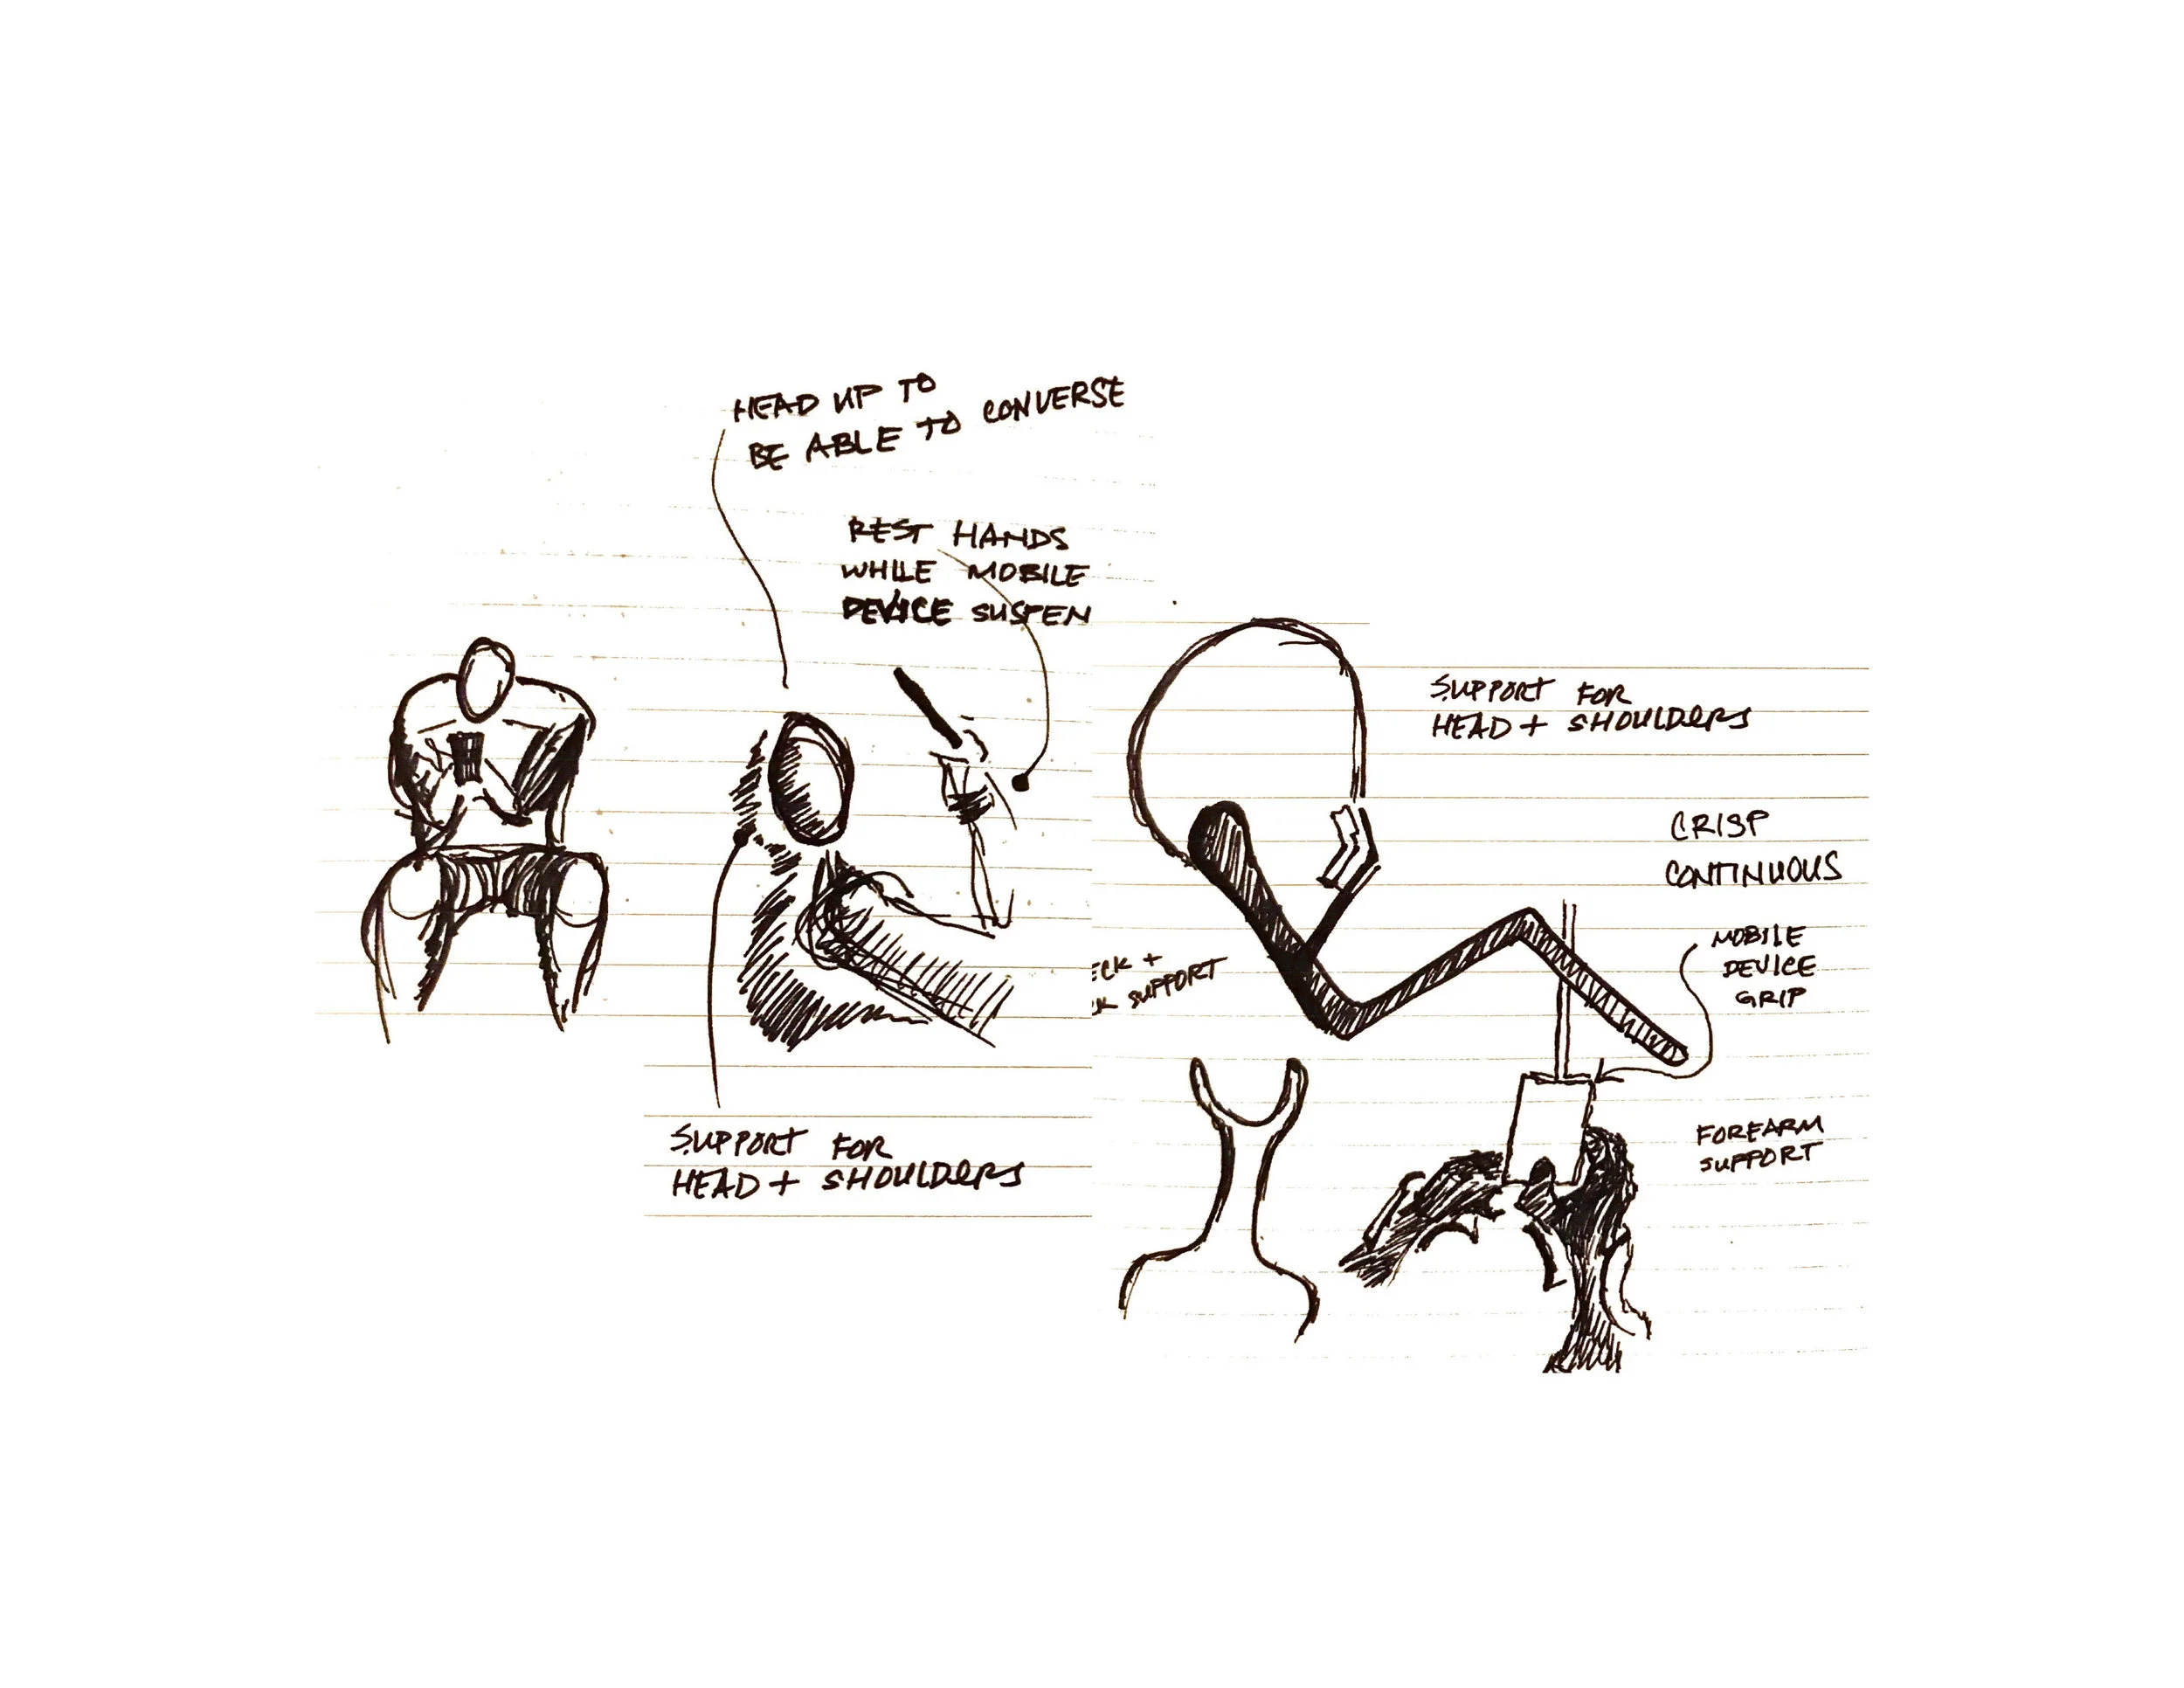 HEAD UP TO
BE ABLE TO CONVERSE
REST HANDS
WHILE MOBILE
DEVICE SUSPEN
SUPPORT FOR
HEAD + SHOULDERS
SUPPORT FOR
HEAD + SHOULDERS
CRISP
CONTINUOUS
MOBILE
DEVICE
GRIP
ECK +
CK SUPPORT
FOREARM
SUPPORT